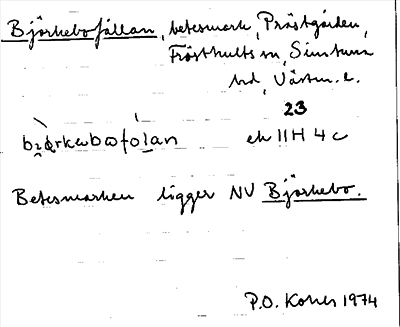 Björkebofållan, betesmark, Prästgården,
Frösthults sn, Simtuna
hd, Västm. l.
23
ek 11H 4c
Betesmarken ligger NV Björkebo.
P.O. 1974